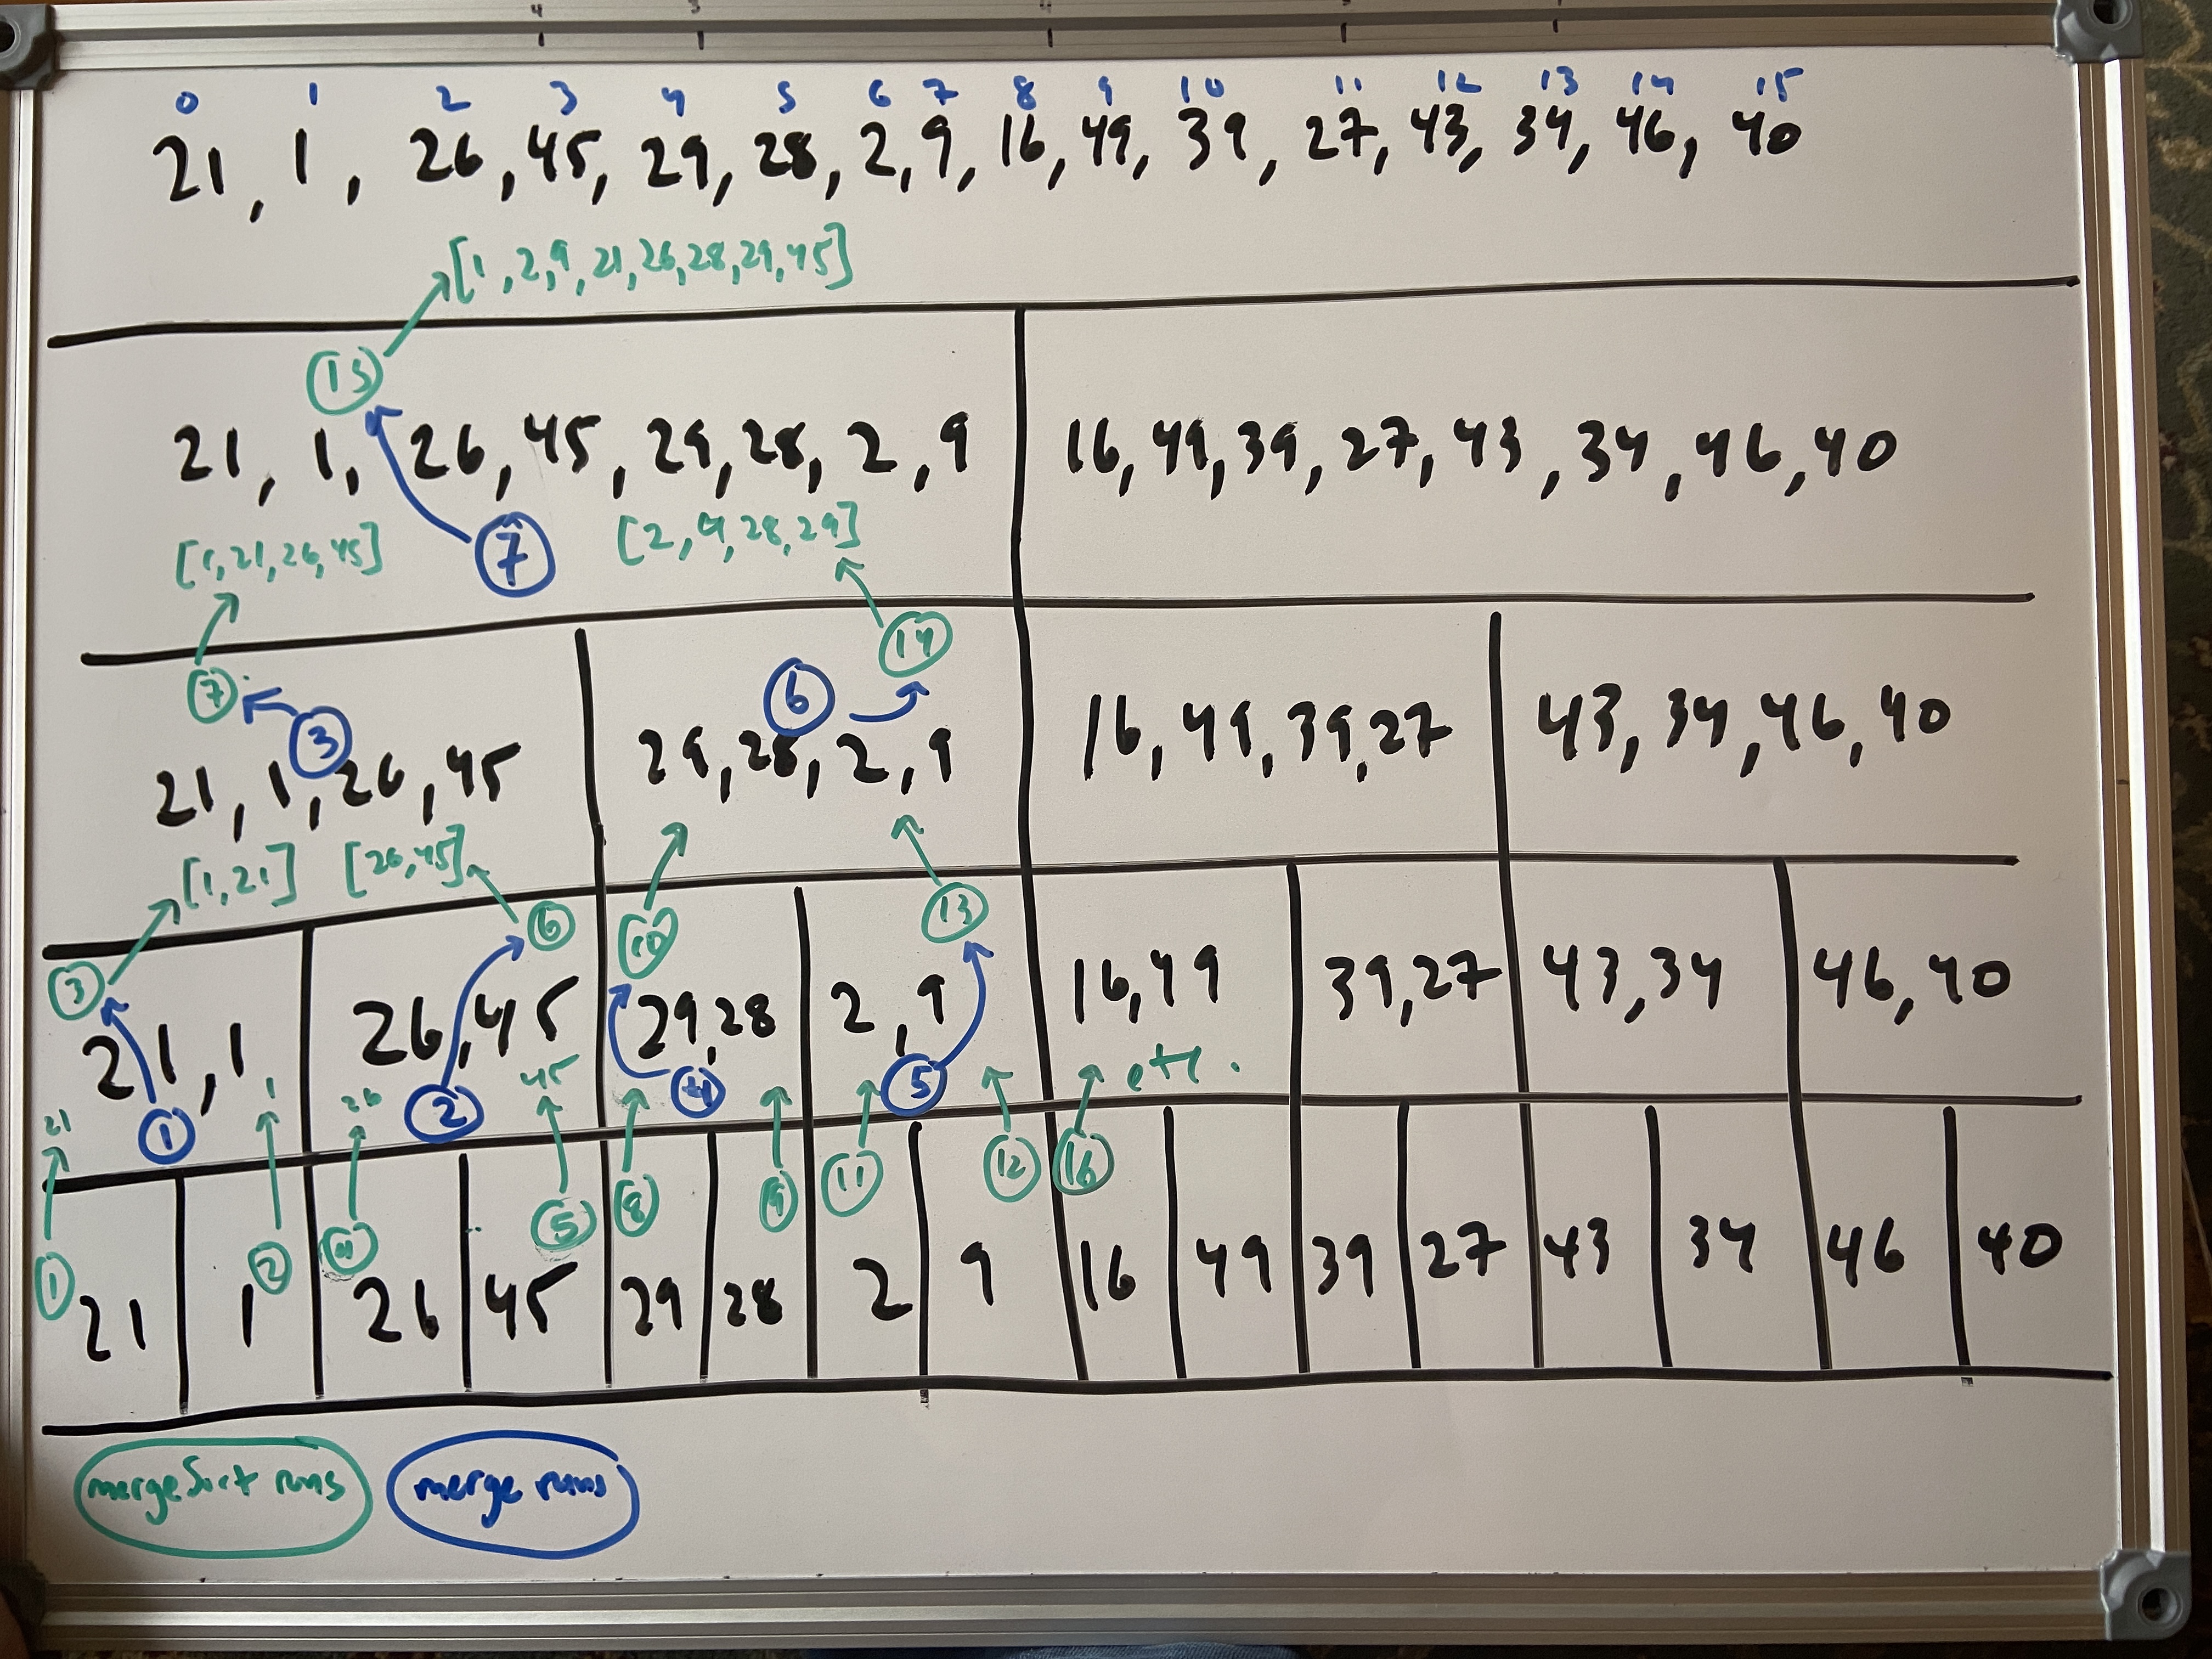 0 1 2 3 4 5 6 7 8 9 10 11 12 13 14 15
21, 1, 26, 45, 29, 28, 2, 9, 16, 49, 39, 27, 43, 34, 46, 40
[1, 2, 9, 21, 26, 28, 29, 45]
15
21, 1, 26, 45, 29, 28, 2, 9 16, 49, 39, 27, 43, 34, 46, 40
[1, 21, 26, 45] 7 [2, 9, 28, 29]
14
7 3 6
21, 1, 26, 45 29, 28, 2, 9 16, 49, 39, 27 43, 34, 46, 40
[1, 21] [26, 45]
3 6 10 13
21, 1 26, 45 29, 28 2, 9 16, 49 39, 27 43, 34 46, 40
21 1 26 45 etc.
1 2 4 5
11 12 16
1 2 4 5 8 9
21 1 26 45 29 28 2 9 16 49 39 27 43 34 46 40
mergeSort runs merge runs